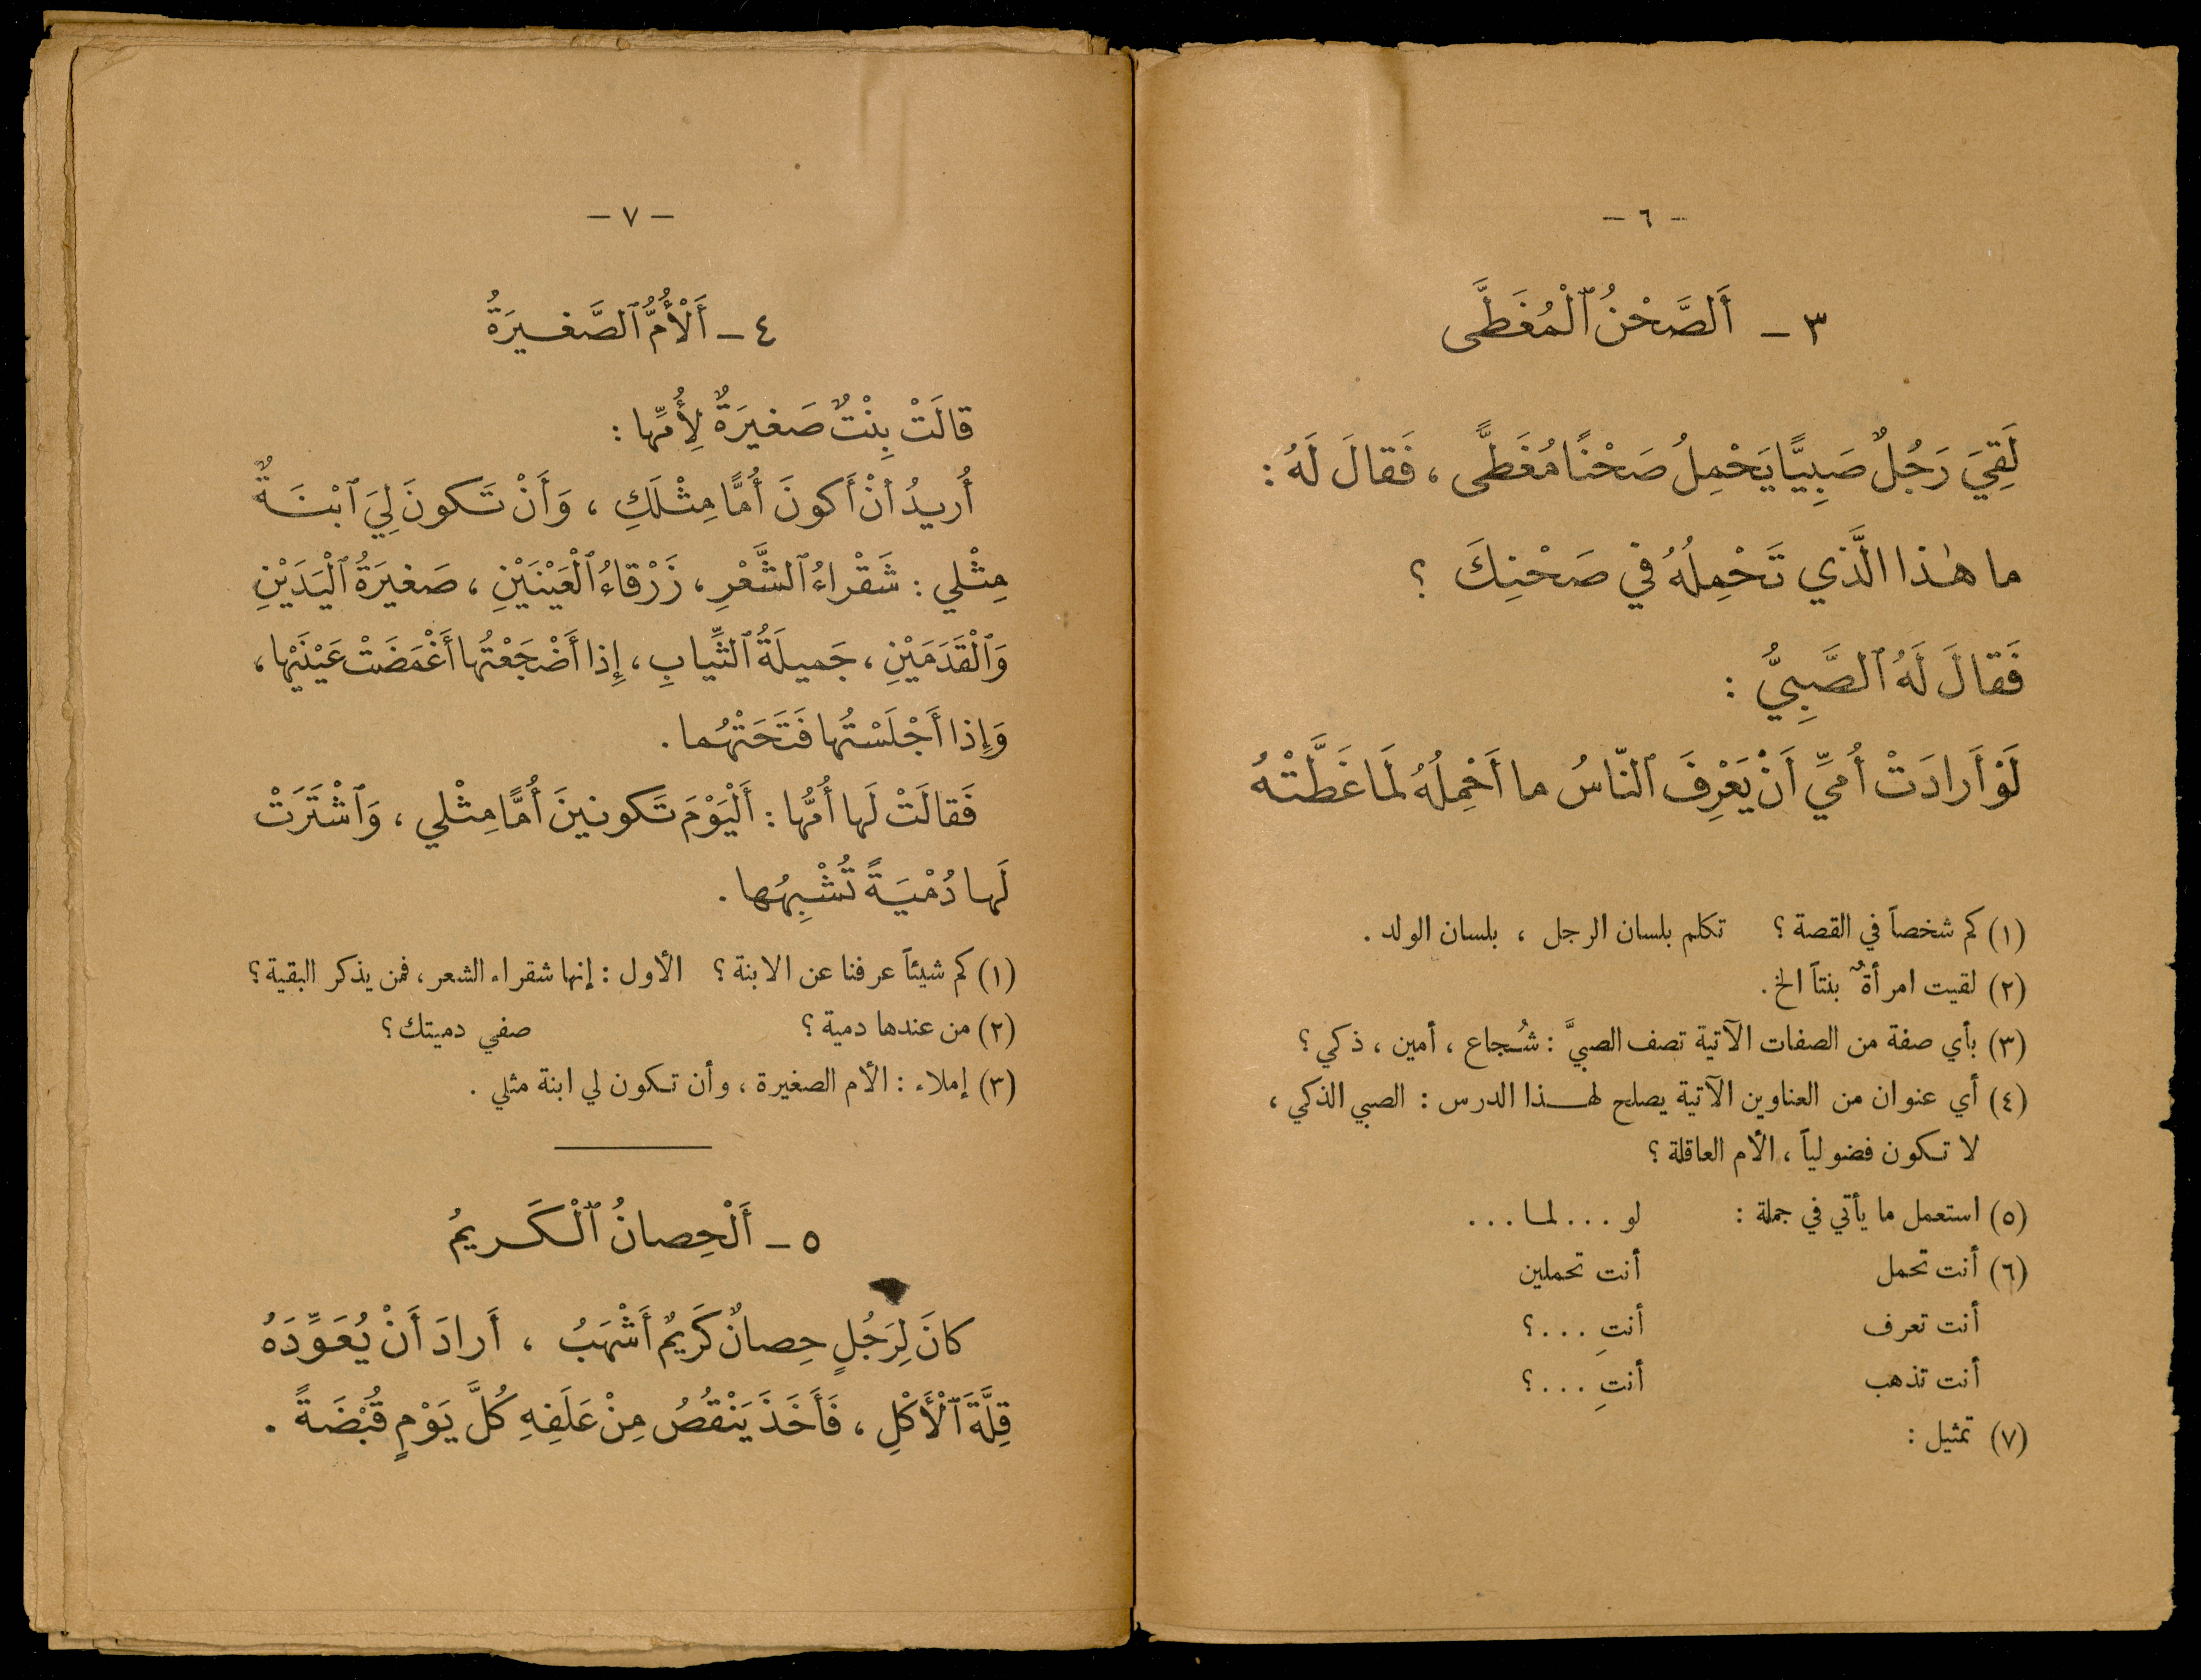 - ٦ -
٣ - أَلصَّحْنُ ٱلْمُغَطَّى
لَقِيَ رَجُلٌ صَبِيًّا يَحْمِلُ صَحْنًا مُغَطًّى ، فَقالَ لَهُ :
ما هٰذا الَّذي تَحْمِلُهُ في صَحْنِكَ ؟
فَقالَ لَهُ ٱلصَّبِيُّ :
لَوْ أَرادَتْ أُمِّي أَنْ يَعْرِفَ ٱلنّاسُ ما أَحْمِلُهُ لَمَا غَطَّتْهُ
(١) كم شخصاً في القصة ؟ تكلم بلسان الرجل ، بلسان الولد .
(٢) لقيت امرأةٌ بنتاً الخ .
(٣) بأي صفة من الصفات الآتية تصف الصبيَّ : شُجاع ، أمين ، ذكي ؟
(٤) أي عنوان من العناوين الآتية يصلح لهـذا الدرس : الصبي الذكي ،
لا تكون فضولياً ، الأم العاقلة ؟
(٥) استعمل ما يأتي في جملة : لو ... لمـا ...
(٦) أنت تحمل أنت تحملين
أنت تعرف أنتِ ... ؟
أنت تذهب أنتِ ... ؟
(٧) تمثيل :
- ٧ -
٤ - أَلْأُمُّ ٱلصَّغيرَةُ
قالَتْ بِنْتٌ صَغيرَةٌ لِأُمِّها :
أُريدُ أنْ أَكونَ أُمًّا مِثْلَكِ ، وَأَنْ تَكونَ لِيَ ٱبْنَةٌ
مِثْلي : شَقْراءُ ٱلشَّعْرِ ، زَرْقاءُ ٱلْعَيْنَيْنِ ، صَغيرَةُ ٱلْيَدَيْنِ
وَٱلْقَدَمَيْنِ ، جَميلَةُ ٱلثِّيابِ ، إِذا أَضْجَعْتُها أَغْمَضَتْ عَيْنَيْها ،
وَإِذا أَجْلَسْتُها فَتَحَتْهُما .
فَقالَتْ لَها أُمُّها : أَلْيَوْمَ تَكونينَ أُمًّا مِثْلي ، وَٱشْتَرَتْ
لَها دُمْيَةً تُشْبِهُها .
(١) كم شيئاً عرفنا عن الابنة ؟ الأول : إنها شقراء الشعر ، فمن يذكر البقية ؟
(٢) من عندها دمية ؟ صفي دميتك ؟
(٣) إملاء : الأم الصغيرة ، وأن تكون لي ابنة مثلي .
٥ - أَلْحِصانُ ٱلْكَريمُ
كانَ لِرَجُلٍ حِصانٌ كَريمٌ أَشْهَبُ ، أَرادَ أَنْ يُعَوِّدَهُ
قِلَّةَ ٱلْأَكْلِ ، فَأَخَذَ يَنْقُصُ مِنْ عَلَفِهِ كُلَّ يَوْمٍ قُبْضَةً .